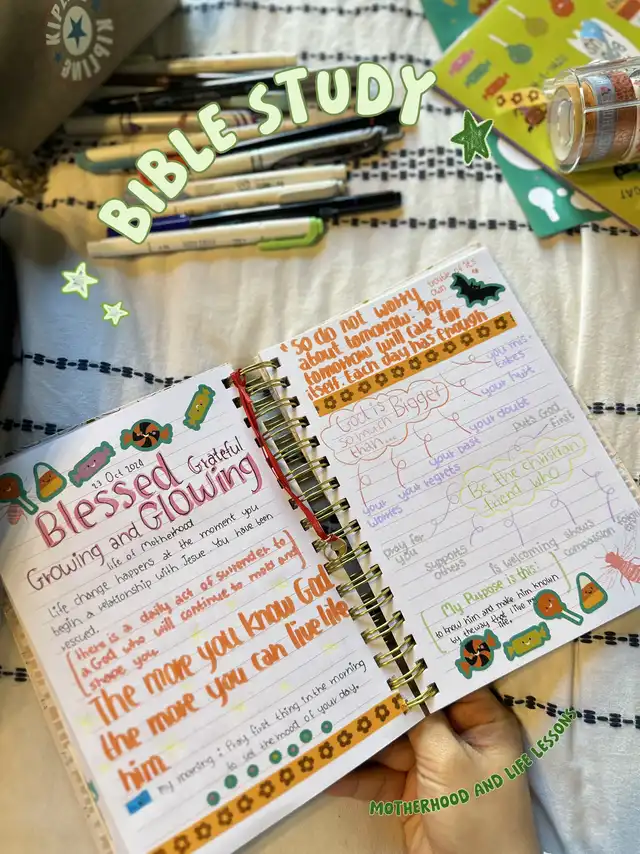 KIPLING
BIBLE STUDY
23 Oct 2024
Blessed Grateful
Growing and Glowing
life of Motherhood
Life change happens at the moment you
begin a relationship with Jesus. You have been
rescued.
there is a daily act of surrender to
a God who will continue to mold and
shape you
The more you know God
the more you can live like
him.
my morning: Pray first thing in the morning
to set the mood of your day.
"So do not worry
about tomorrow; for
tomorrow will care for
itself. Each day has enough
trouble of its
own"
God is
so much Bigger
than...
you mis-
takes
your hurt
your doubt
your past
your regrets
your
worries
puts God
first
Be the christian
friend who...
pray for
you
supports
others
is welcoming
shows
compassion
My Purpose is this:
to know him and make him known
by the way that i live my
life.
MOTHERHOOD AND LIFE LESSONS